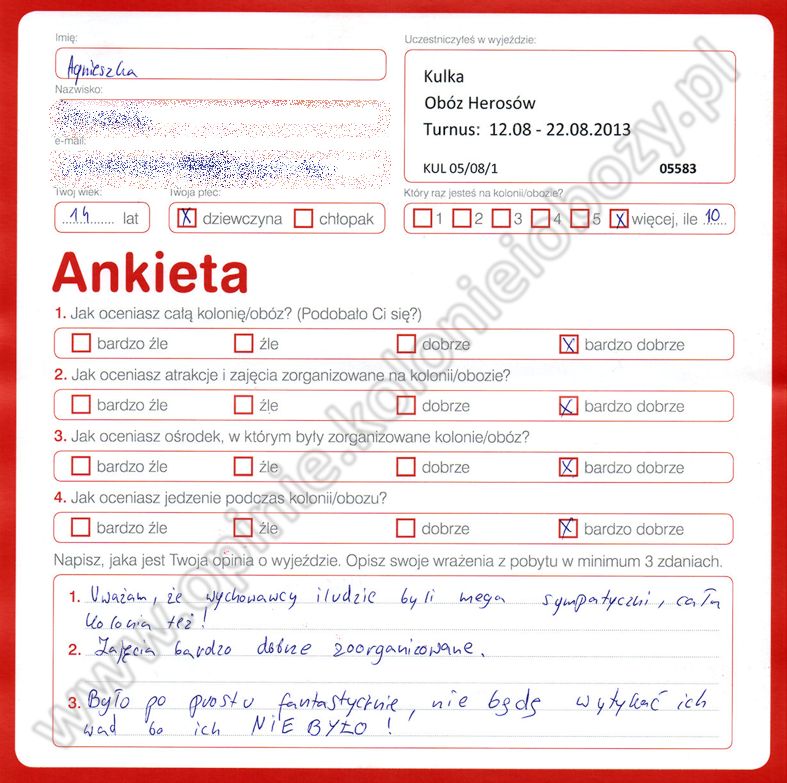 Imię:
Agnieszka
Nazwisko:
e-mail:
Twój wiek:
14 lat
Twoja płeć:
X dziewczyna chłopak
Uczestniczyłeś w wyjeździe:
Kulka
Obóz Herosów
Turnus: 12.08 - 22.08.2013
KUL 05/08/1 05583
Który raz jesteś na kolonii/obozie?
1 2 3 4 5 X więcej, ile 10
Ankieta
1. Jak oceniasz całą kolonię/obóz? (Podobało Ci się?)
bardzo źle źle dobrze X bardzo dobrze
2. Jak oceniasz atrakcje i zajęcia zorganizowane na kolonii/obozie?
bardzo źle źle dobrze X bardzo dobrze
3. Jak oceniasz ośrodek, w którym były zorganizowane kolonie/obóz?
bardzo źle źle dobrze X bardzo dobrze
4. Jak oceniasz jedzenie podczas kolonii/obozu?
bardzo źle źle dobrze X bardzo dobrze
Napisz, jaka jest Twoja opinia o wyjeździe. Opisz swoje wrażenia z pobytu w minimum 3 zdaniach.
1. Uważam, że wychowawcy i ludzie byli mega sympatyczni, cała
kolonia też!
2. Zajęcia bardzo dobrze zoorganizowane.
3. Było po prostu fantastycznie, nie będę wytykać ich
wad bo ich NIE BYŁO!
www.opinie.kolonieiobozy.pl